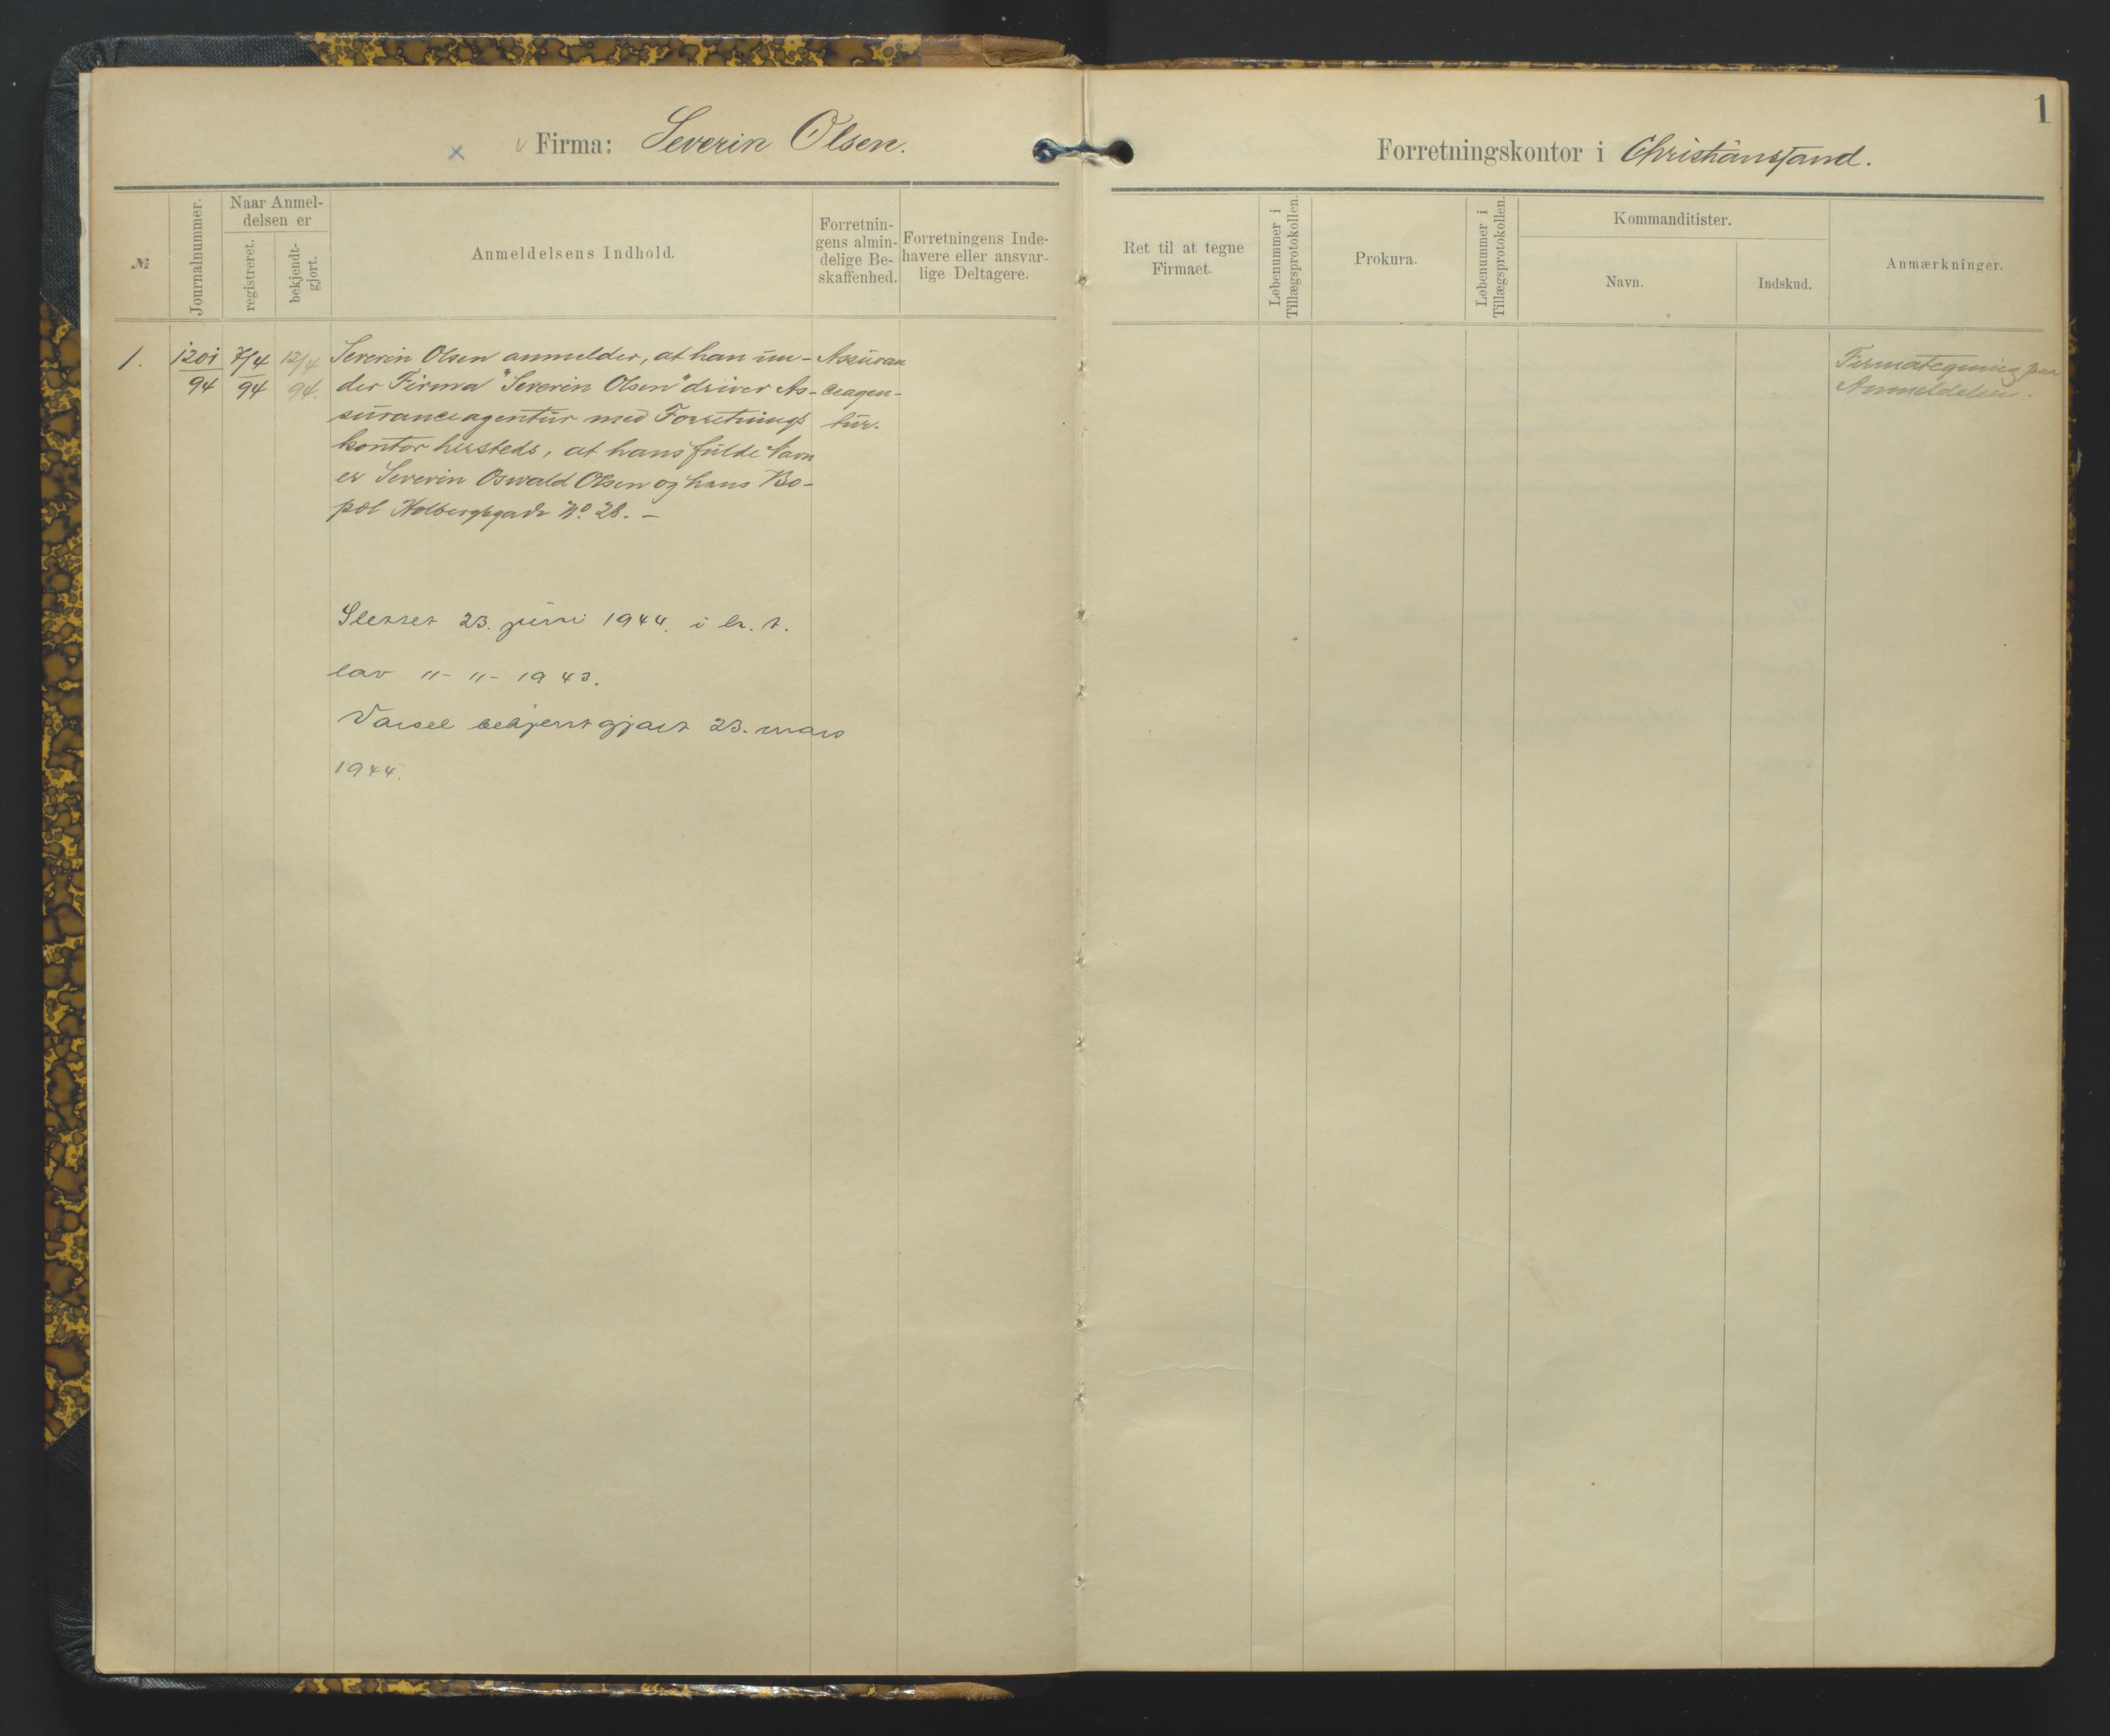 1
Firma: Severin Olsen.
Forretningskontor i Christianssand.
№
Journalnummer.
Naar Anmel-
delsen er
registreret.
bekjendt-
gjort.
Anmeldelsens Indhold.
Forretnin-
gens almin-
delige Be-
skaffenhed.
Forretningens Inde-
havere eller ansvar-
lige Deltagere.
Ret til at tegne
Firmaet.
Løbenummer i
Tillægsprotokollen.
Prokura.
Løbenummer i
Tillægsprotokollen.
Kommanditister.
Navn.
Indskud.
Anmærkninger.
1.
1201
94
7/4
94
12/4
94.
Severin Olsen anmelder, at han un-
der Firma "Severin Olsen" driver As-
suranceagentur med Forretnings
kontor hersteds, at hans fulde Navn
er Severin Oswald Olsen og hans Bo-
pæl Holbergsgade No. 28. –
Assuran
ceagen-
tur.
Firmategning paa
Anmeldelsen.
Slettet 23. juni 1944. i h. t.
lov 11-11-1943.
Varsel bekjentgjort 23. mars
1944.